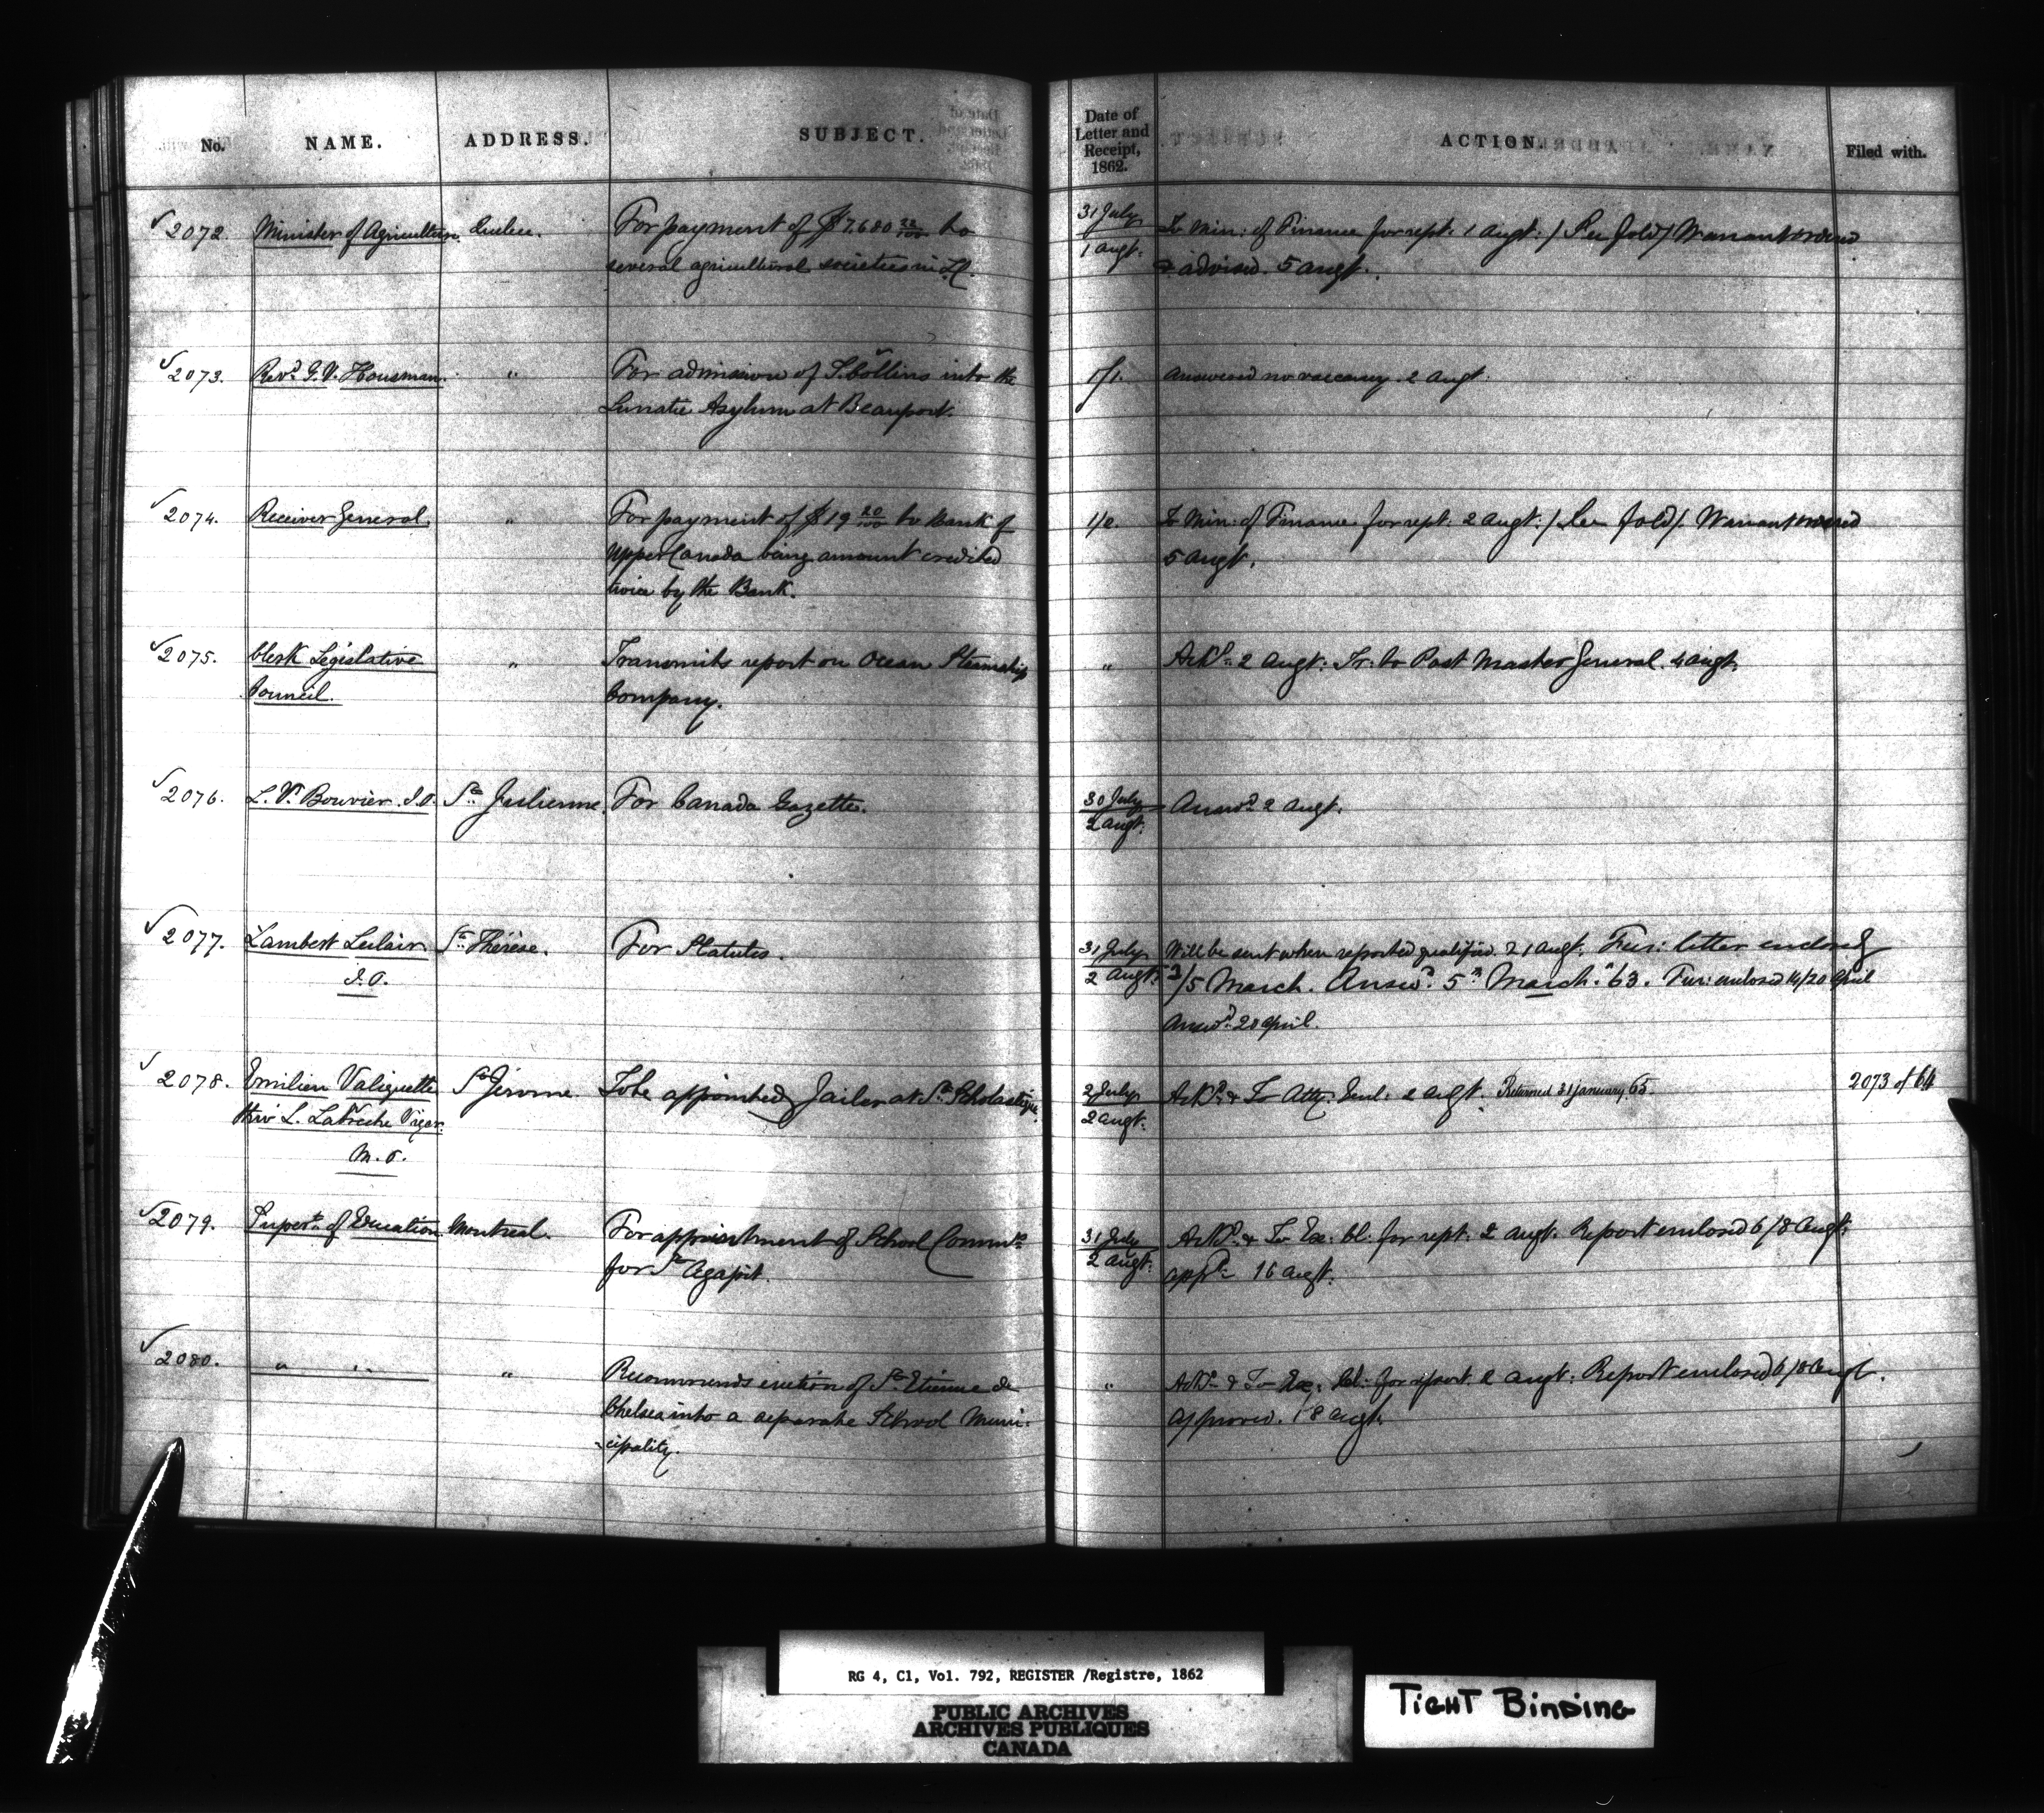 No. NAME. ADDRESS. SUBJECT. Date of Letter and Receipt, 1862. ACTION. Filed with.
✓2072. Minister of Agriculture. Quebec. For payment of $7,680 22/100 to 31 July To Min: of Finance for rept: 1 Augt: / See fold / Warrant ordered
several agricultural societies in L.C. 1 augt: & advised. 5 augt.
✓2073. Revd. G. V. Housman. " For admission of S. Collins into the 1/1. Answered no vacancy. 2 Augt.
Lunatic Asylum at Beauport.
✓2074. Receiver General. " For payment of $19 20/100 to Bank of 1/2. To Min: of Finance for rept: 2 Augt: / See fold /. Warrant ordered
Upper Canada being amount credited 5 augt.
twice by the Bank.
✓2075. Clerk Legislative " Transmits report on Ocean Steamship " Ackd. 2 Augt: Tr: to Post Master General. 4 augt.
Council. Company.
✓2076. L. V. Bouvier. J.P. Ste Julienne. For Canada Gazette. 30 July Answd. 2 Augt.
2 augt:
✓2077. Lambert Leclair Ste Thérèse. For Statutes. 31 July Will be sent when reported qualified. 21 augt. Fur: letter enclosed
J.P. 2 Augt: 3/5 March. Answd. 5th March. 63. Fur: enclosed 14/20 April
Answd. 20 April.
✓2078. Emilien Valiquette St Jérome. To be appointed Jailer at Ste Scholastique. 2 July Ackd. & To Atty. Genl: 2 augt. Returned 31 January 65. 2073 of 64
thro' L. Labrèche Viger. 2 augt:
M.P.
✓2079. Supert. of Education Montreal. For appointment of School Commrs 31 July Ackd. & To Ex: Cl: for rept: 2 Augt: Report enclosed 6/8 Augt:
for St Agapit. 2 augt: appd. 16 augt:
✓2080. " " " Recommends erection of St Etienne de " Ackd. & To Ex: Cl: for report 2 augt: Report enclosed 6/8 Augt.
Chelsea into a separate School Muni- Approved. 18 augt.
-cipality.
RG 4, C1, Vol. 792, REGISTER /Registre, 1862
PUBLIC ARCHIVES
ARCHIVES PUBLIQUES
CANADA
TIGHT BINDING